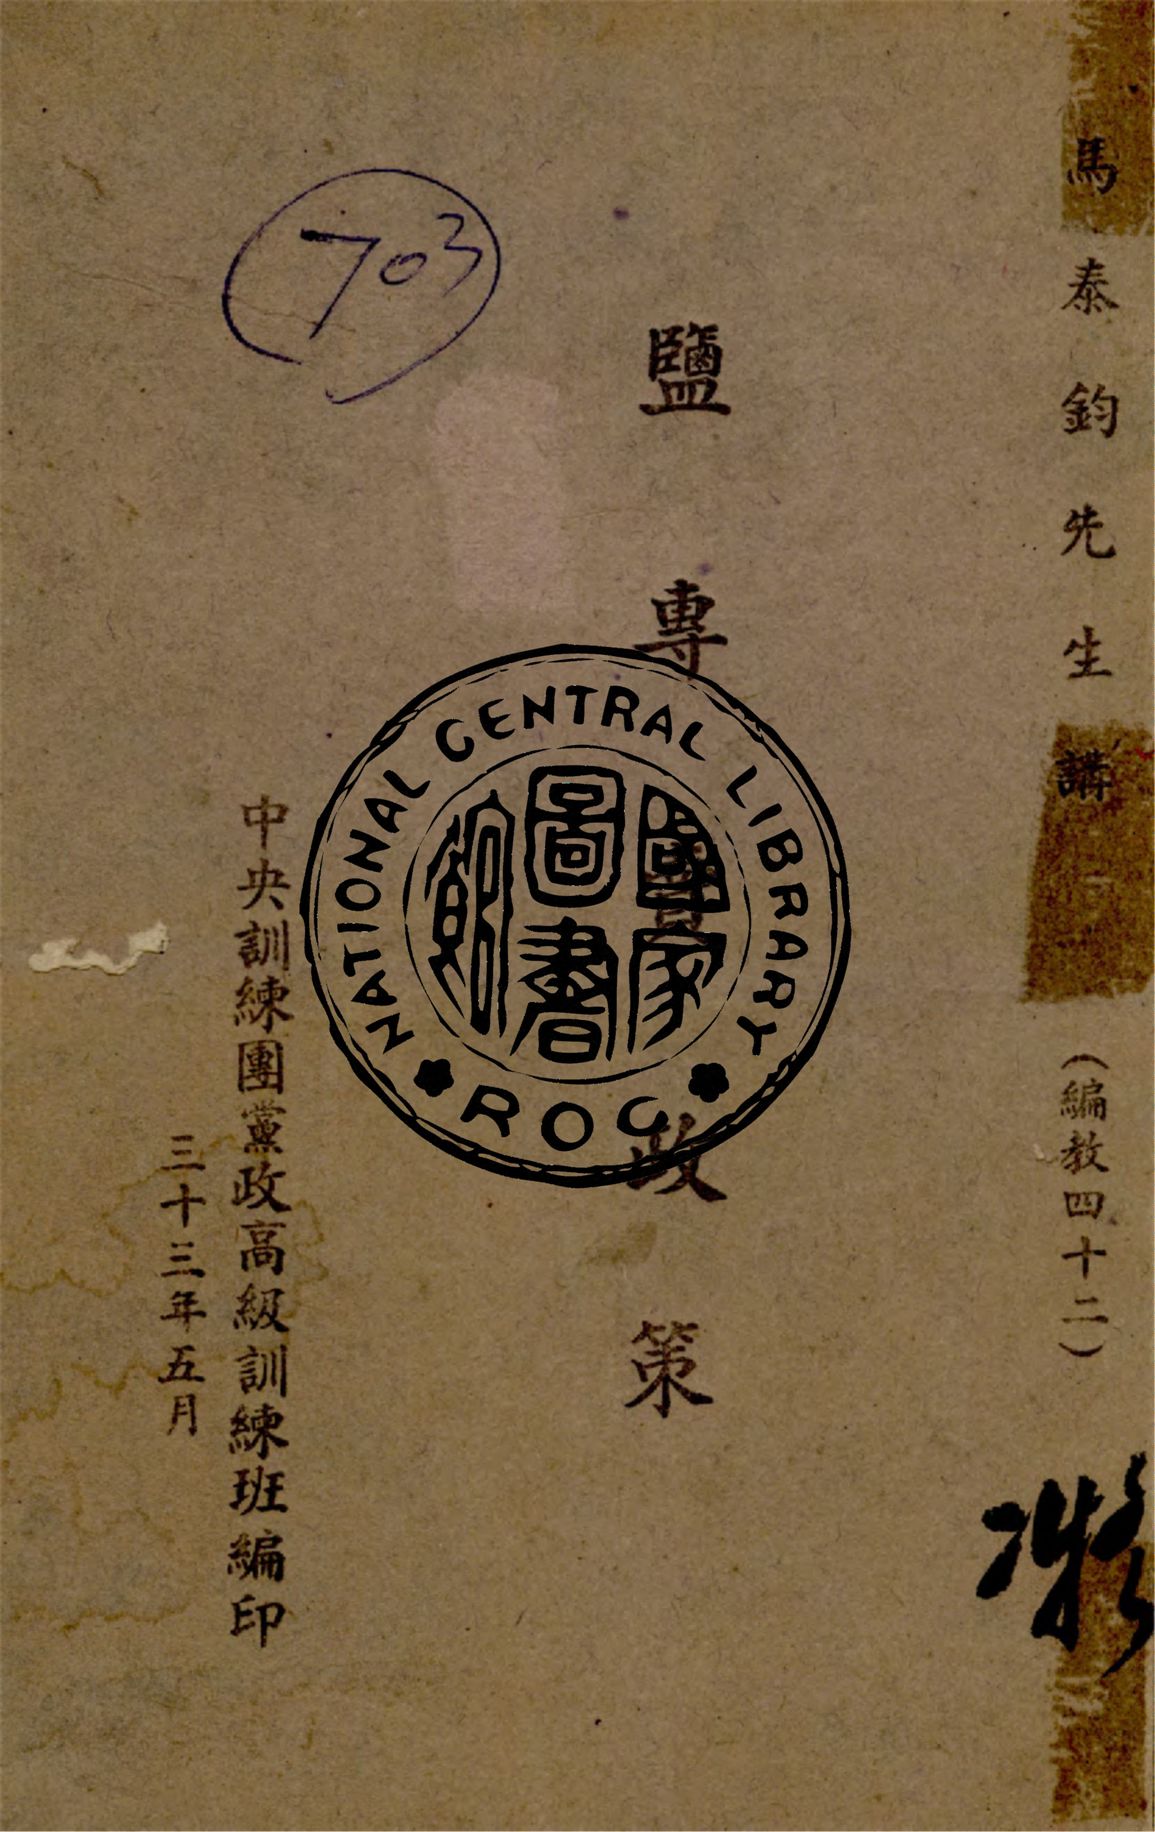 馬泰鈞先生講 (編教四十二)
鹽專賣政策
中央訓練團黨政高級訓練班編印
三十三年五月
703
NATIONAL CENTRAL LIBRARY
國家
圖書
館
ROC